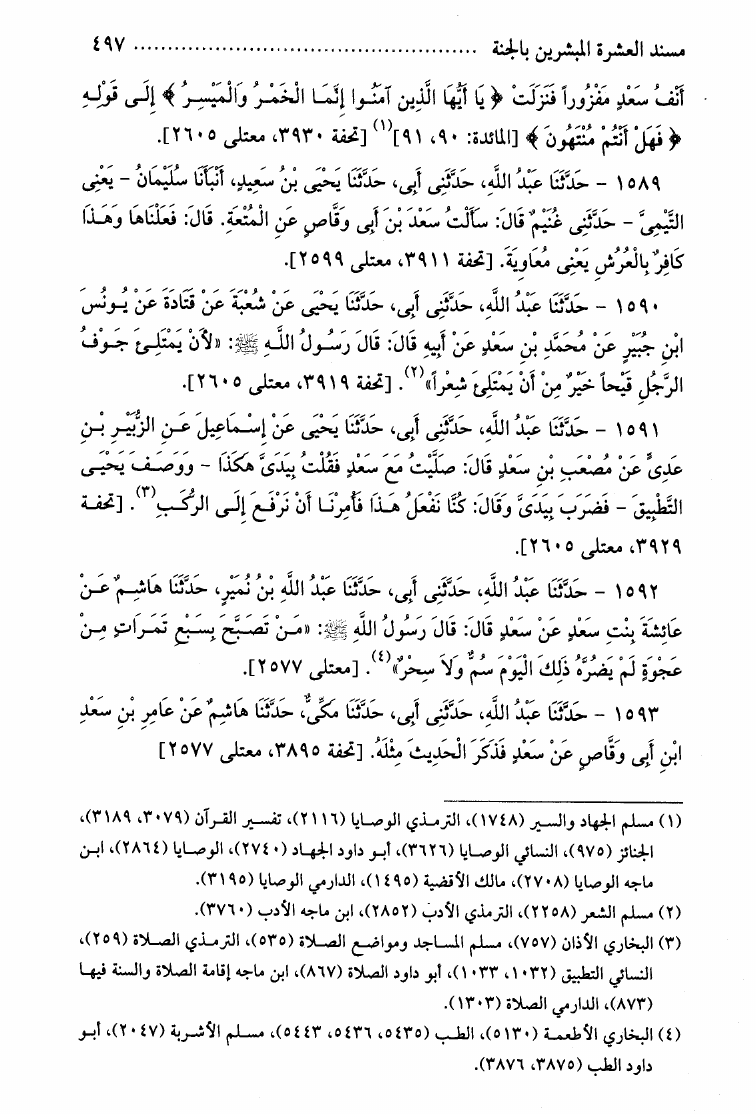 مسند العشرة المبشرين بالجنة ................................................ ٤٩٧
أَنْفُ سَعْدٍ مَفْزُوراً فَنَزَلَتْ ﴿ يَا أَيُّهَا الَّذِينَ آمَنُوا إِنَّمَا الْخَمْرُ وَالْمَيْسِرُ ﴾ إِلَى قَوْلِهِ
﴿ فَهَلْ أَنْتُمْ مُنْتَهُونَ ﴾ [المائدة: ٩٠، ٩١](١) [تحفة ٣٩٣٠، معتلى ٢٦٠٥].
١٥٨٩ - حَدَّثَنَا عَبْدُ اللَّهِ، حَدَّثَنِى أَبِى، حَدَّثَنَا يَحْيَى بْنُ سَعِيدٍ، أَنْبَأَنَا سُلَيْمَانُ - يَعْنِى
التَّيْمِىَّ - حَدَّثَنِى غُنَيْمٌ قَالَ: سَأَلْتُ سَعْدَ بْنَ أَبِى وَقَّاصٍ عَنِ الْمُتْعَةِ. قَالَ: فَعَلْنَاهَا وَهَذَا
كَافِرٌ بِالْعُرُشِ يَعْنِى مُعَاوِيَةَ. [تحفة ٣٩١١، معتلى ٢٥٩٩].
١٥٩٠ - حَدَّثَنَا عَبْدُ اللَّهِ، حَدَّثَنِى أَبِى، حَدَّثَنَا يَحْيَى عَنْ شُعْبَةَ عَنْ قَتَادَةَ عَنْ يُونُسَ
ابْنِ جُبَيْرٍ عَنْ مُحَمَّدِ بْنِ سَعْدٍ عَنْ أَبِيهِ قَالَ: قَالَ رَسُولُ اللَّهِ ﷺ: «لأَنْ يَمْتَلِئَ جَوْفُ
الرَّجُلِ قَيْحاً خَيْرٌ مِنْ أَنْ يَمْتَلِئَ شِعْراً»(٢). [تحفة ٣٩١٩، معتلى ٢٦٠٥].
١٥٩١ - حَدَّثَنَا عَبْدُ اللَّهِ، حَدَّثَنِى أَبِى، حَدَّثَنَا يَحْيَى عَنْ إِسْمَاعِيلَ عَنِ الزُّبَيْرِ بْنِ
عَدِىٍّ عَنْ مُصْعَبِ بْنِ سَعْدٍ قَالَ: صَلَّيْتُ مَعَ سَعْدٍ فَقُلْتُ بِيَدَىَّ هَكَذَا - وَوَصَفَ يَحْيَى
التَّطْبِيقَ - فَضَرَبَ بِيَدَىَّ وَقَالَ: كُنَّا نَفْعَلُ هَذَا فَأُمِرْنَا أَنْ نَرْفَعَ إِلَى الرُّكَبِ(٣). [تحفة
٣٩٢٩، معتلى ٢٦٠٥].
١٥٩٢ - حَدَّثَنَا عَبْدُ اللَّهِ، حَدَّثَنِى أَبِى، حَدَّثَنَا عَبْدُ اللَّهِ بْنُ نُمَيْرٍ، حَدَّثَنَا هَاشِمٌ عَنْ
عَائِشَةَ بِنْتِ سَعْدٍ عَنْ سَعْدٍ قَالَ: قَالَ رَسُولُ اللَّهِ ﷺ: «مَنْ تَصَبَّحَ بِسَبْعِ تَمَرَاتٍ مِنْ
عَجْوَةٍ لَمْ يَضُرَّهُ ذَلِكَ الْيَوْمَ سُمٌّ وَلاَ سِحْرٌ»(٤). [معتلى ٢٥٧٧].
١٥٩٣ - حَدَّثَنَا عَبْدُ اللَّهِ، حَدَّثَنِى أَبِى، حَدَّثَنَا مَكِّىٌّ، حَدَّثَنَا هَاشِمٌ عَنْ عَامِرِ بْنِ سَعْدِ
ابْنِ أَبِى وَقَّاصٍ عَنْ سَعْدٍ فَذَكَرَ الْحَدِيثَ مِثْلَهُ. [تحفة ٣٨٩٥، معتلى ٢٥٧٧]
(١) مسلم الجهاد والسير (١٧٤٨)، الترمذي الوصايا (٢١١٦)، تفسير القرآن (٣٠٧٩، ٣١٨٩)،
الجنائز (٩٧٥)، النسائي الوصايا (٣٦٢٦)، أبو داود الجهاد (٢٧٤٠)، الوصايا (٢٨٦٤)، ابن
ماجه الوصايا (٢٧٠٨)، مالك الأقضية (١٤٩٥)، الدارمي الوصايا (٣١٩٥).
(٢) مسلم الشعر (٢٢٥٨)، الترمذي الأدب (٢٨٥٢)، ابن ماجه الأدب (٣٧٦٠).
(٣) البخاري الأذان (٧٥٧)، مسلم المساجد ومواضع الصلاة (٥٣٥)، الترمذي الصلاة (٢٥٩)،
النسائي التطبيق (١٠٣٢، ١٠٣٣)، أبو داود الصلاة (٨٦٧)، ابن ماجه إقامة الصلاة والسنة فيها
(٨٧٣)، الدارمي الصلاة (١٣٠٣).
(٤) البخاري الأطعمة (٥١٣٠)، الطب (٥٤٣٥، ٥٤٣٦، ٥٤٤٣)، مسلم الأشربة (٢٠٤٧)، أبو
داود الطب (٣٨٧٥، ٣٨٧٦).